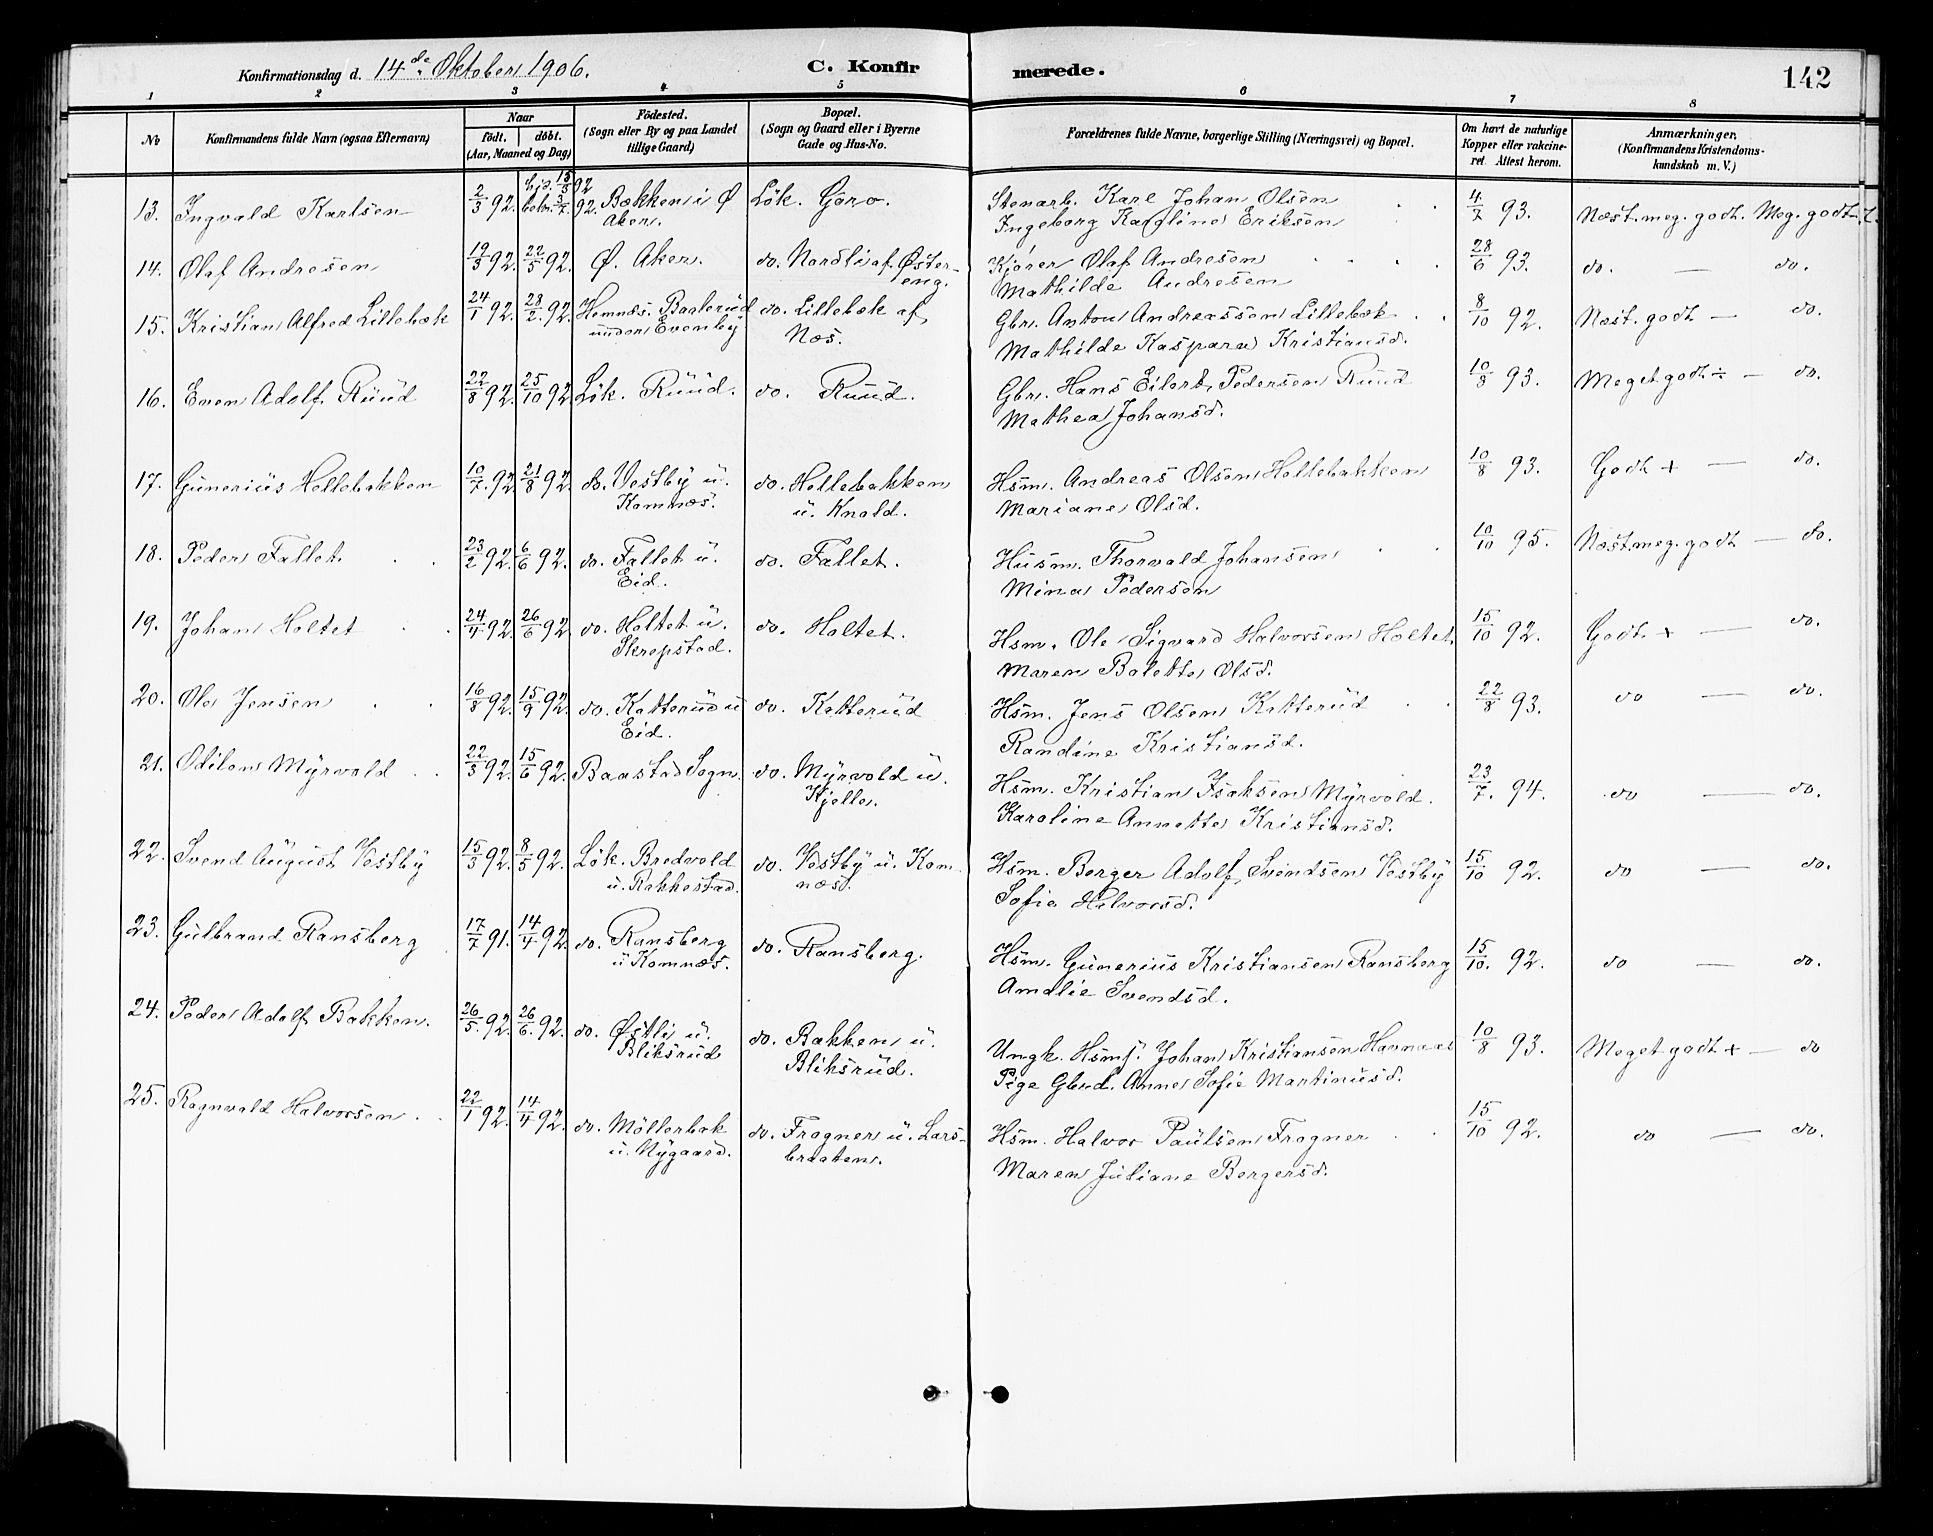 Konfirmationsdag d. 14de Oktober 1906. C. Konfirmerede. 142
1 2 3 4 5 6 7 8
No Konfirmandens fulde Navn (ogsaa Efternavn) Naar født. døbt. (Aar, Maaned og Dag) Födested. (Sogn eller By og paa Landet tillige Gaard) Bopæl. (Sogn og Gaard eller i Byerne Gade og Hus-No. Forældrenes fulde Navne, borgerlige Stilling (Næringsvei) og Bopæl. Om havt de naturlige Kopper eller vakcineret Attest herom. Anmærkninger. (Konfirmandens Kristendomskundskab m. V.)
13. Ingvald Karlsen 2/3 92. hjd. 15/5 92 bekr. 3/7 92. Bækken i Ø Aker. Løk. Garo. Stenarb. Karl Johan Olsen 4/7 93. Næst. meg. godt. Meg. godt
Ingeborg Karoline Eriksen
14. Olaf Andresen 19/3 92. 22/5 92. Ø. Aker. do. Nordli af Østereng. Kjører Olaf Andresen 28/6 93. do. — do.
Mathilde Andresen
15. Kristian Alfred Lillebæk 24/1 92. 28/2 92. Hemnæs. Baalerud under Evenby do. Lillebæk af Næs. Gbr. Anton Andreassen Lillebæk 8/10 92. Næst. godt — do.
Mathilde Kaspara Kristiansd.
16. Even Adolf Ruud 22/8 92. 25/10 92. Løk. Ruud. do. Ruud. Gbr. Hans Eilert Pedersen Ruud 10/8 93. Meget godt ÷ — do.
Mathea Johansd.
17. Gunerius Hellebakken 10/7 92. 21/8 92. do. Vestby u. Komnæs. do. Hellebakken u. Knold. Hsm. Andreas Olsen Hellebakken 10/8 93. Godt + — do.
Mariane Olsd.
18. Peder Fallet 23/2 92. 6/6 92. do. Fallet u. Eid. do. Fallet. Husm. Thorvald Johansen 10/10 95. Næst. meg. godt — do.
Mina Pedersen
19. Johan Holtet 24/4 92. 26/6 92. do. Holtet u. Skrepstad. do. Holtet. Hsm. Ole Sigvard Halvorsen Holtet 15/10 92. Godt + — do.
Maren Bolette Olsd.
20. Ole Jensen 16/8 92. 15/9 92. do. Katterud u Eid. do. Katterud Hsm. Jens Olsen Katterud 22/8 93. do — do.
Randine Kristiansd.
21. Odilon Myrvold 22/3 92. 15/6 92. Baastad Sogn. do. Myrvold u. Kjelle. Hsm. Kristian Isaksen Myrvold. 23/7. 94. do — do.
Karoline Annette Kristiansd.
22. Svend August Vestby 15/3 92. 8/5 92. Løk. Bredvold u. Rakkestad. do. Vestby u. Komnæs. Hsm. Borger Adolf Svendsen Vestby 15/10 92. do — do.
Sofie Halvorsd.
23. Gulbrand Ransberg 17/7 91. 14/4 92. do. Ransberg u Komnæs. do. Ransberg. Hsm. Gunerius Kristiansen Ransberg 15/10. 92. do — do.
Amalie Svendsd.
24. Peder Adolf Bakken. 26/5. 92. 26/6. 92. do. Østli u. Bliksrud do. Bakken u. Bliksrud. Ungk. Hsmf. Johan Kristiansen Havnaas 10/8 93. Meget godt + — do
Pige Gbrd. Anne Sofie Martinusd.
25. Ragnvald Halvorsen 22/1 92. 14/4 92. do. Møllerbæk u. Nygaard. do. Frogner u. Larsbraaten. Hsm. Halvor Paulsen Frogner 15/10 92. do — do.
Maren Juliane Borgersd.